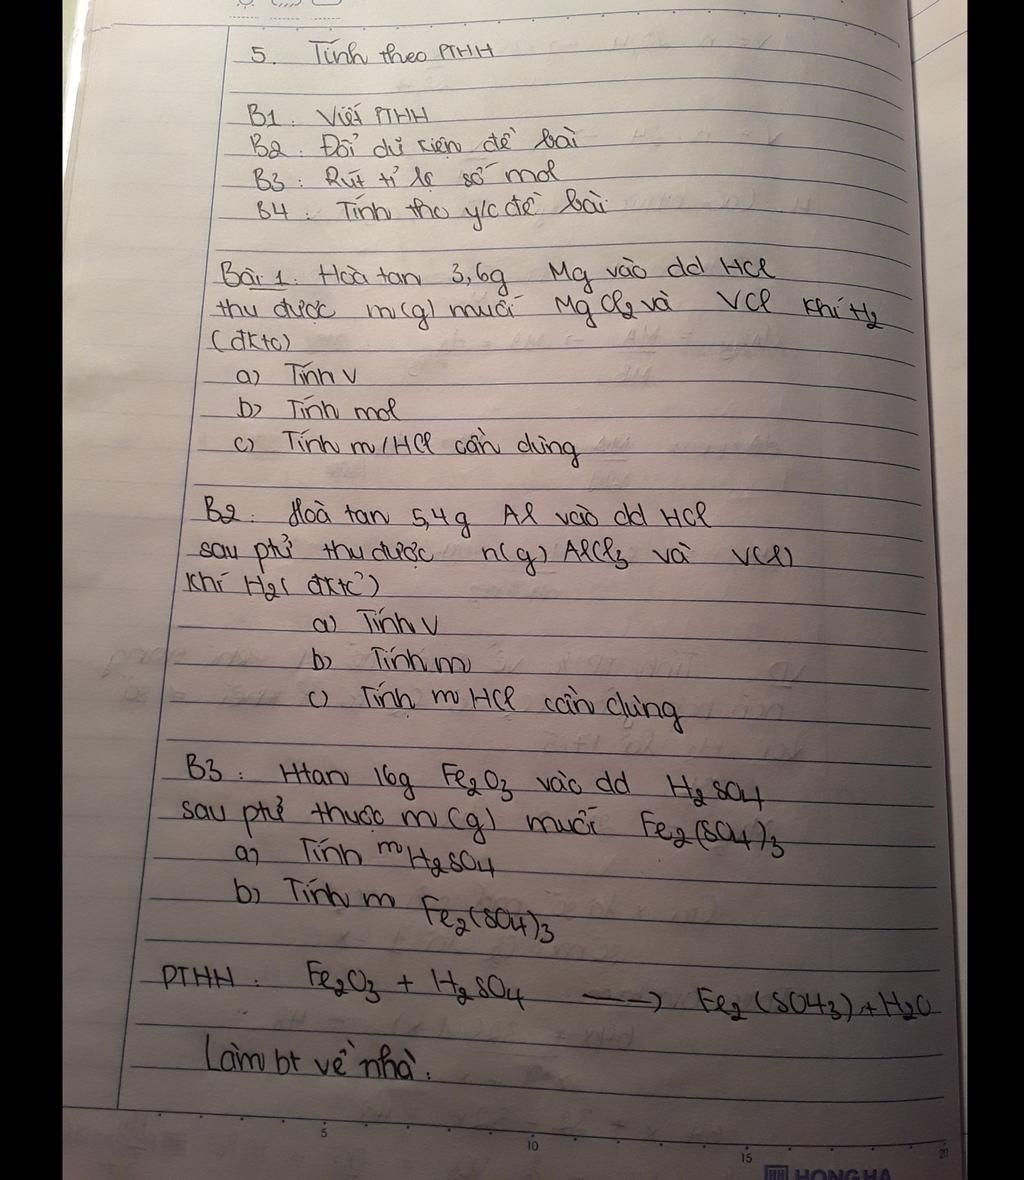 5. Tính theo PTHH
B1: Viết PTHH
B2: Đổi dữ kiện đề bài
B3: Rút tỉ lệ số mol
B4: Tính tho y/c đề bài
Bài 1: Hoà tan 3,6g Mg vào dd HCl
thu được m(g) muối MgCl₂ và V(l) khí H₂
(đktc)
a) Tính V
b) Tính mol
c) Tính m/HCl cần dùng
B2: Hoà tan 5,4g Al vào dd HCl
sau phử thu được n(g) AlCl₃ và V(l)
khí H₂( đktc)
a) Tính V
b) Tính m
c) Tính m HCl cần dùng
B3: Htan 16g Fe₂O₃ vào dd H₂SO4
sau phử thuọc m(g) muối Fe₂(SO4)₃
a) Tính mH₂SO4
b) Tính m Fe₂(SO4)₃
PTHH: Fe₂O₃ + H₂SO4 ---> Fe₂(SO4₃)+H₂O
Làm bt về nhà.
5 10 15 20
HONG HA